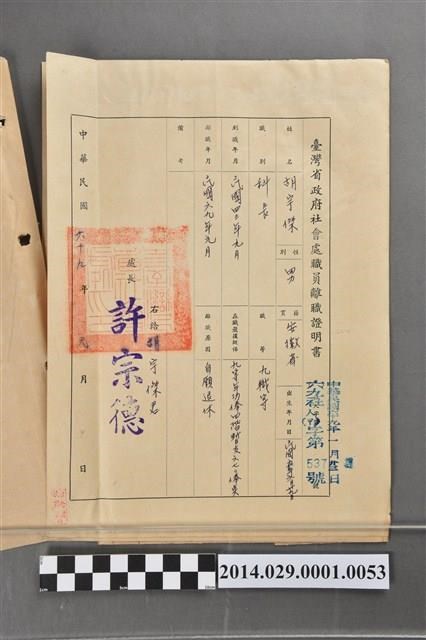 臺灣省政府社會處職員離職證明書
中華民國六九年一月
六九社人字第537號
姓名 胡宇傑 性別 男 籍貫 安徽省 出生年月日
職別 科長 職等 九職等
到職年月 民國四二年元月 在職最後級俸
離職年月 民國六九年元月 離職原因 自願退休
備考
右給胡宇傑君
處長 許宗德
中華民國六十九年元月 日
2014.029.0001.0053